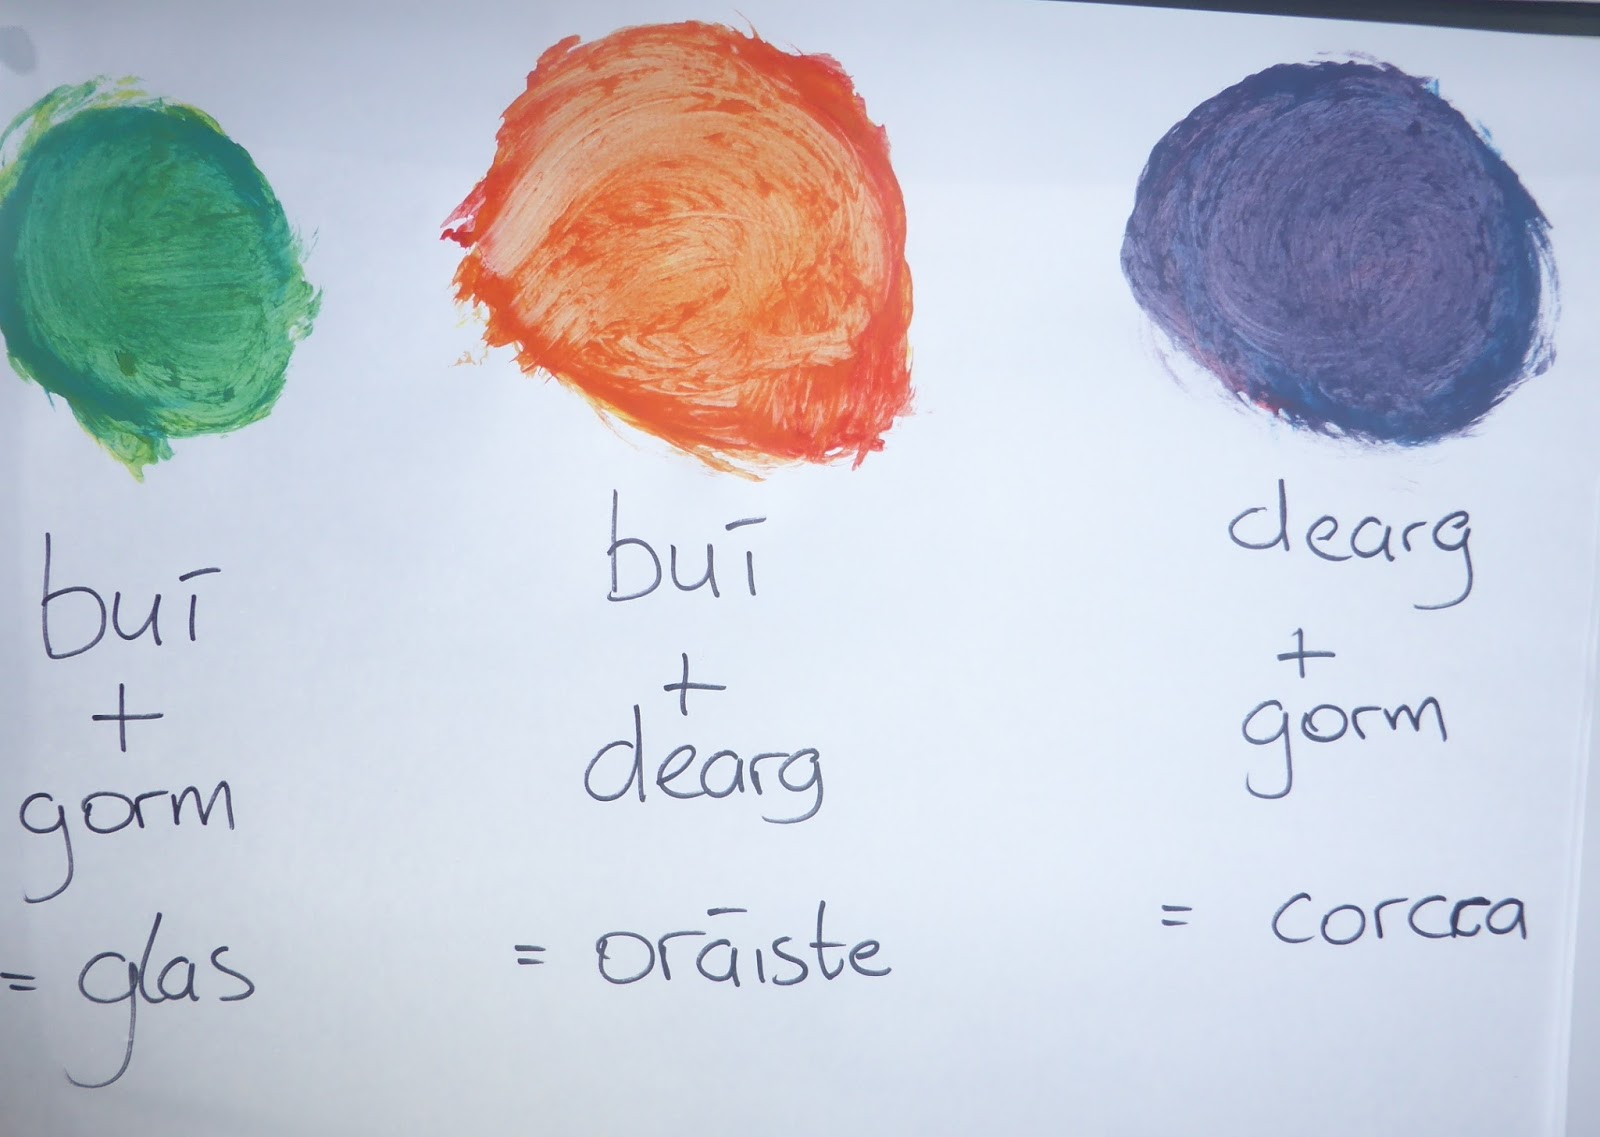 buī
+
gorm
= glas
buī
+
dearg
= orāiste
dearg
+
gorm
= corcra